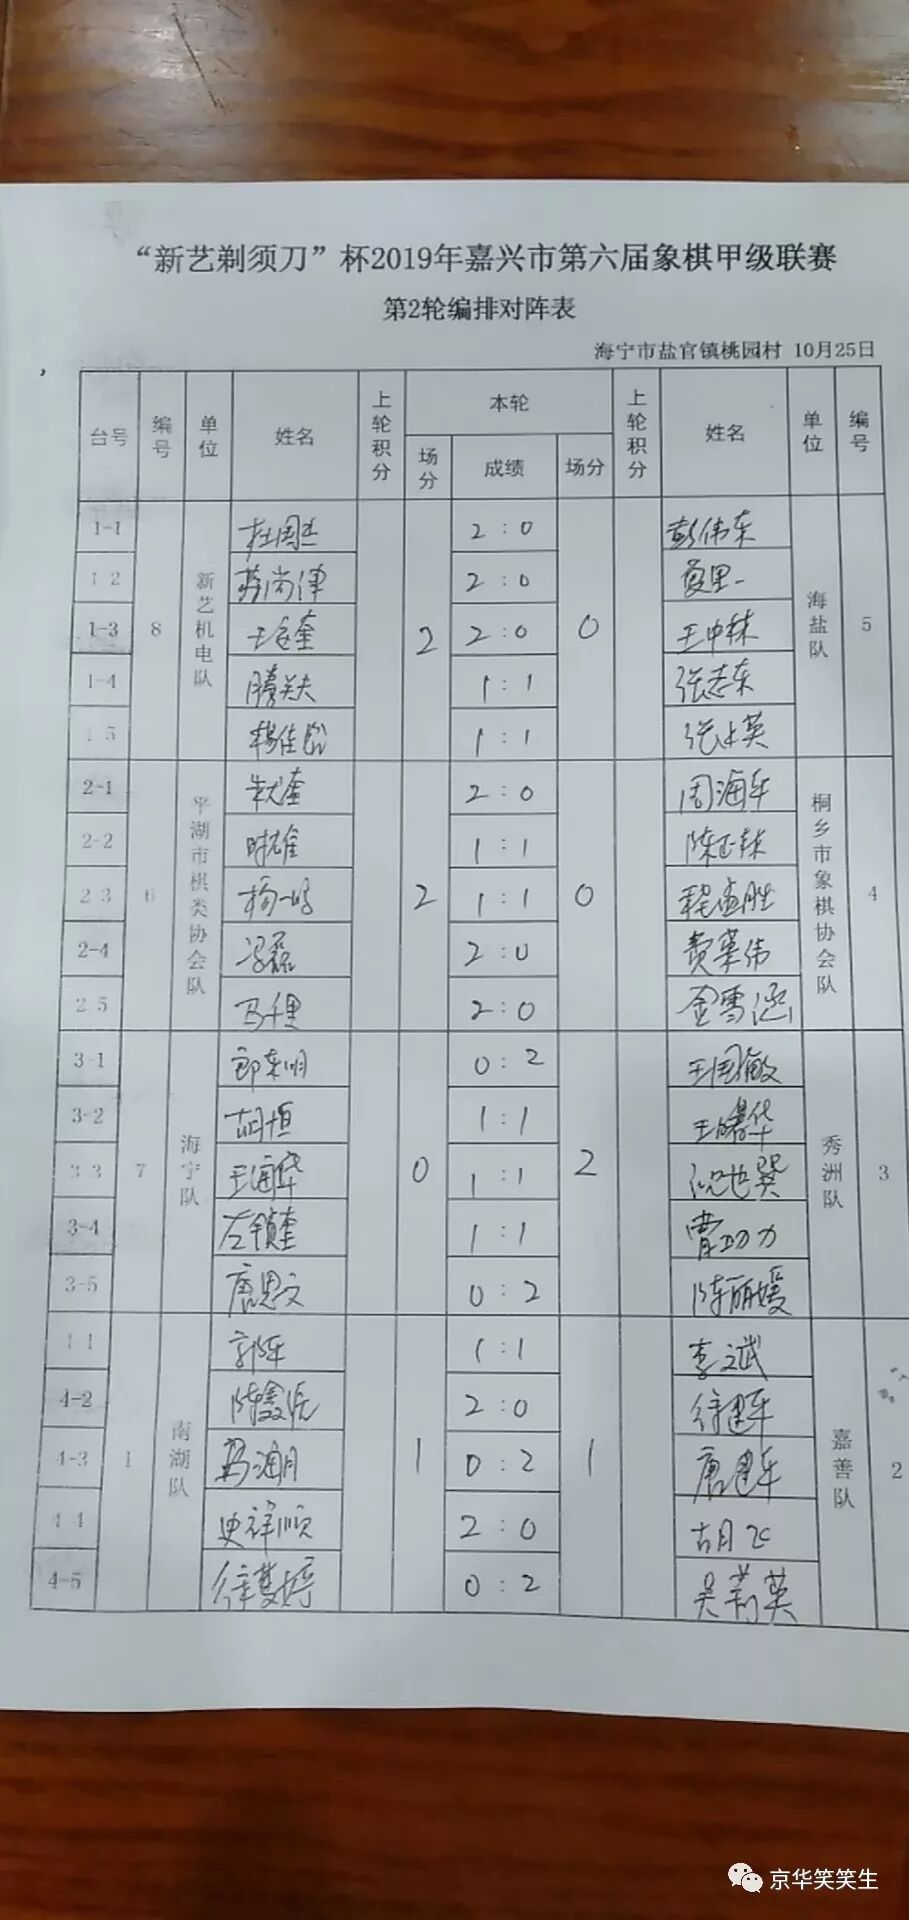 “新艺剃须刀”杯2019年嘉兴市第六届象棋甲级联赛
第2轮编排对阵表
海宁市盐官镇桃园村 10月25日
台号 编号 单位 姓名 上轮积分 本轮 上轮积分 姓名 单位 编号
场分 成绩 场分
8 新艺机电队 2 0 海盐队 5
1-1 杜国杰 2:0 彭伟东
1-2 蒋尚津 2:0
1-3 2:0 王中林
1-4 滕关夫 1:1 张志东
1-5 1:1 张水英
6 平湖市棋类协会队 2 0 桐乡市象棋协会队 4
2-1 2:0 周海军
2-2 1:1 陈正林
2-3 1:1 程孟胜
2-4 冯磊 2:0 费荣伟
2-5 马千里 2:0 金雪涵
7 海宁队 0 2 秀洲队 3
3-1 郎东明 0:2 王国敏
3-2 胡恒 1:1 王曙华
3-3 王海华 1:1 倪也巽
3-4 左镇奎 1:1 曹功力
3-5 唐思文 0:2 陈丽媛
1 南湖队 1 1 嘉善队 2
4-1 郭陈 1:1 李文斌
4-2 2:0 徐建军
4-3 冯海月 0:2 唐建军
4-4 史祥顺 2:0 胡飞
4-5 徐梦婷 0:2 吴莉英
京华笑笑生